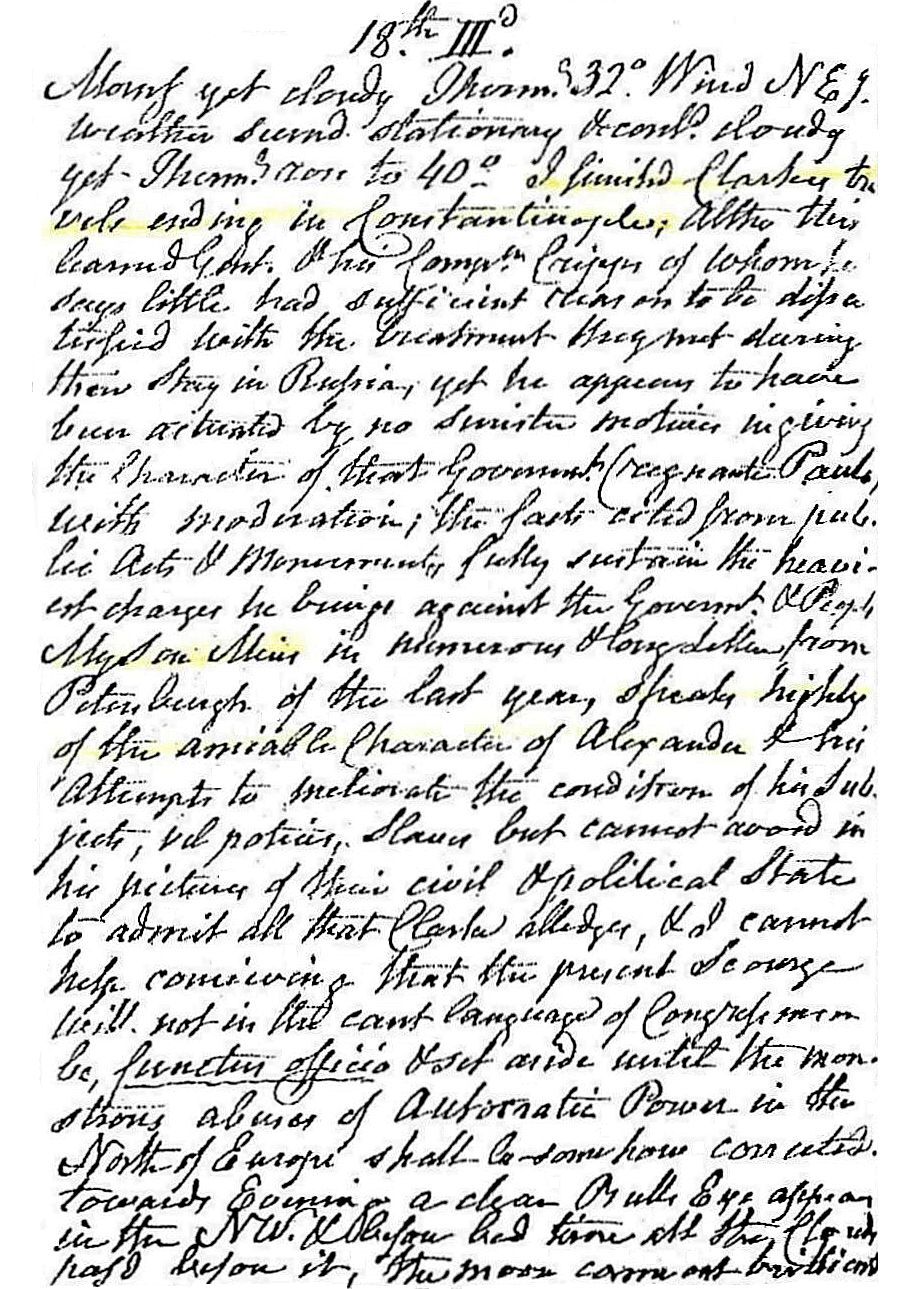 18th IIId.
Morng yet cloudy Thermr. 32°. Wind NE y.
weather seemd stationary & contd. cloudy
yet Thermr. rose to 40° I finishd Clarkes tra
vels ending in Constantinople; altho this
learned Gent. & his Compn. Cripps of whom he
says little had sufficient reason to be dissa
tisfied with the treatment they met during
their Stay in Russia, yet he appears to have
been actuated by no sinister motives in giving
the Character of that Goverment (regnante Paulo)
with moderation; the facts cited from pub-
lic Acts & Monuments, fully sustain the heavi-
est charges he brings against the Governt. & People
My Son in numerous & long Letters from
Petersburgh of the last year, speaks highly
of the amiable Character of Alexander & his
Attempts to meliorate the condition of his Sub-
jects, vel potius, Slaves but cannot avoid in
his pictures of their civil & political State
to admit all that Clarke alledges, & I cannot
help conceiving that the present Scourge
will not in the cant language of Congressmen
be, functus officio & set aside until the mon-
strous abuses of Autocratic Power in the
North of Europe shall be somehow corrected.
towards Evening a clear Bulls Eye appears
in the NW. & before bed time all the Clouds
passd before it, the moon came out brilliant